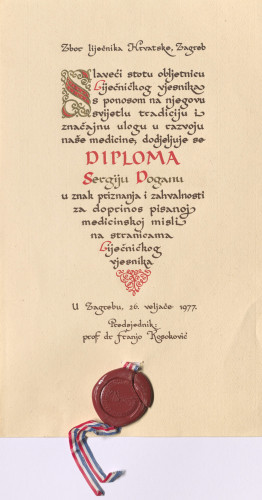 Zbor liječnika Hrvatske, Zagreb
Slaveći stotu obljetnicu
Liječničkog vjesnika
s ponosom na njegovu
svijetlu tradiciju i
značajnu ulogu u razvoju
naše medicine, dodjeljuje se
DIPLOMA
Sergiju Doganu
u znak priznanja i zahvalnosti
za doprinos pisanoj
medicinskoj misli
na stranicama
Liječničkog
vjesnika
U Zagrebu, 26. veljače 1977.
Predsjednik:
prof dr Franjo Kosoković